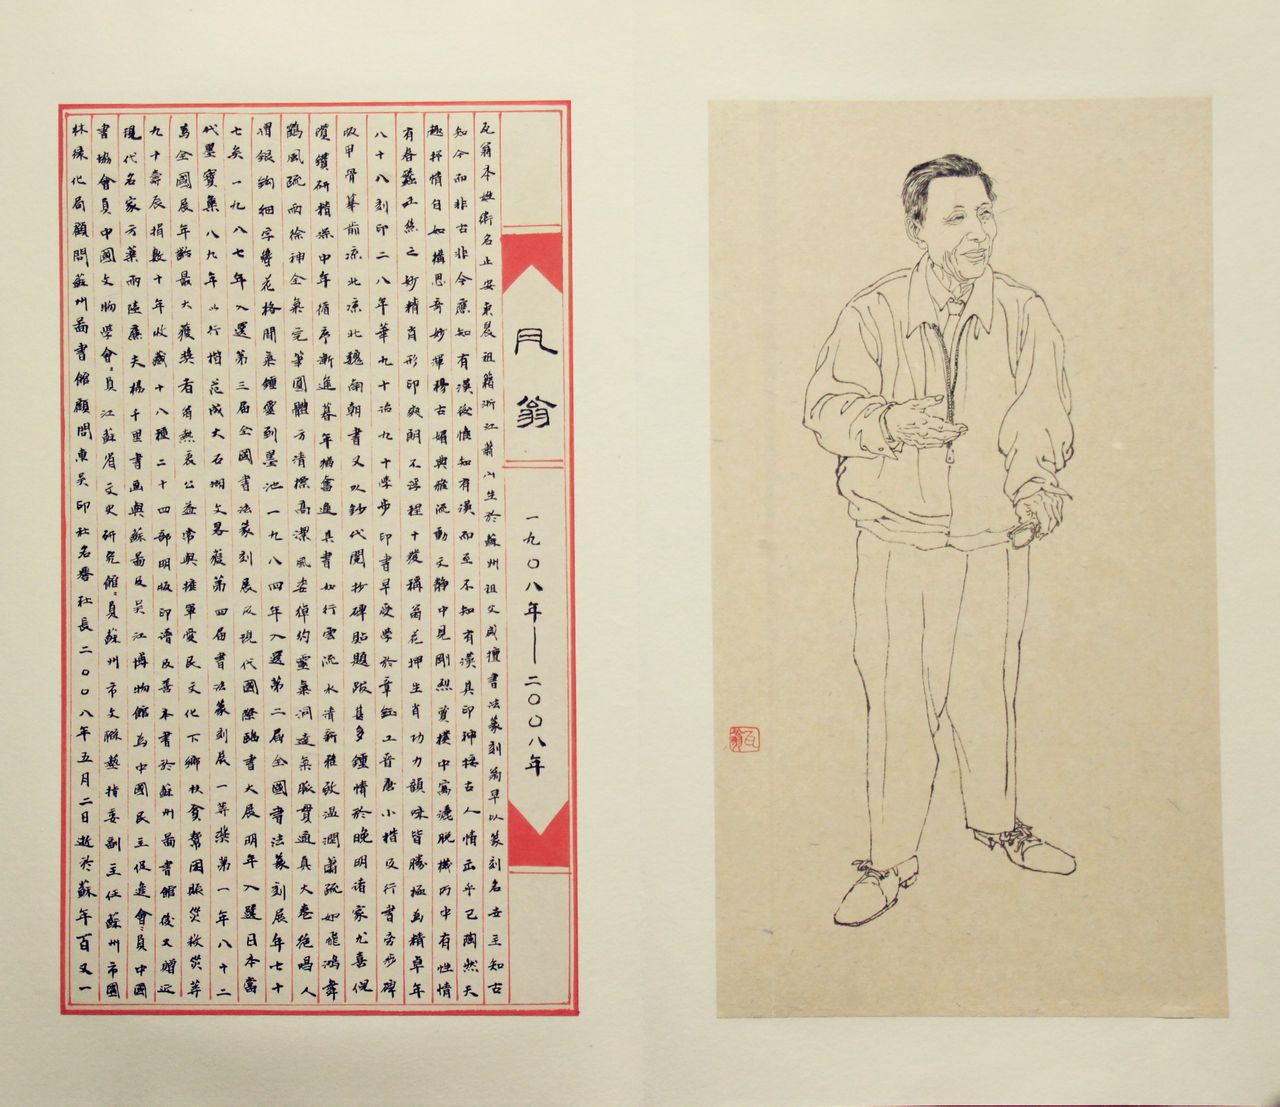 瓦翁
一九〇八年——二〇〇八年
瓦翁本姓衛名止安東晨祖籍浙江蕭山生於蘇州祖父咸擅書法篆刻翁早以篆刻名世主知古
知今而非古非今應知有漢後慎知有漢而至不知有漢其印神接古人情函乎己陶然天
趣抒情自如構思奇妙渾穆古媚典雅流動文靜中見剛烈質樸中寓灑脫機巧中有性情
有春蠶吐絲之妙精肖形印爽朗不浮稱翁花押生肖功力韻味皆勝極為精卓年
八十八刻印二八年華九十治九十學步印書早受學於章鈺工晉唐小楷及行書旁涉碑
版甲骨摹前涼北涼北魏南朝書又以鈔代閱抄碑貼題跋甚多鍾情於晚明諸家尤喜倪
瓚鑽研精深中年循序漸進暮年猶奮進其書如行雲流水清新雅致溫潤蕭疏如飛鴻舞
鶴風疏雨徐神全氣完筆圓體方清標高潔風姿綽約靈氣洞達氣脈貫通真大絕唱人
謂銀鉤細字傳花格間氣鍾靈到墨池一九八四年入選第二屆全國書法篆刻展年七十
七矣一九八七年入選第三屆全國書法篆刻展及現代國際臨書大展明年入選日本當
代墨寶集八九年以行楷范成大石湖文畧獲第四屆書法篆刻展一等獎第一年八十二
為全國展年齡最大獲獎者翁熱衷公益常與擁軍愛民文化下鄉扶貧幫困賑災救災等
九十壽辰捐數十年收藏十八種二十四部明版印譜及善本書於蘇州圖書館後又贈近
現代名家方藥雨陸廉夫楊千里書画與蘇圖及吳江博物館為中國民主促進會〻員中國
書協會員中國文物學會〻員江蘇省文史研究館〻員蘇州市文聯藝指委副主任蘇州市園
林綠化局顧問蘇州圖書館顧問東吳印社名譽社長二〇〇八年五月二日逝於蘇年百又一
瓦翁